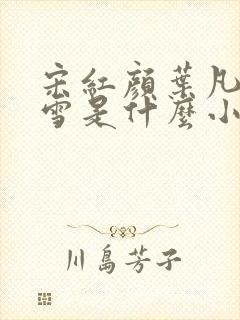 宋紅顏葉凡
雪是什麼小
川島芳子